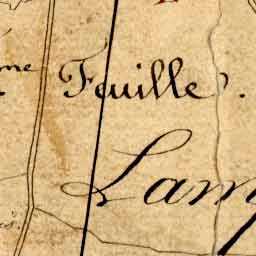 me Feuille.
Lam